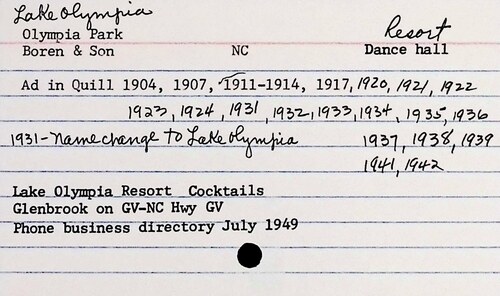 Lake Olympia
Olympia Park Resort
Boren & Son NC Dance hall
Ad in Quill 1904, 1907, ✓1911-1914, 1917, 1920, 1921, 1922
1923, 1924, 1931, 1932, 1933, 1934, 1935, 1936
1931-Name change to Lake Olympia 1937, 1938, 1939
1941, 1942
Lake Olympia Resort Cocktails
Glenbrook on GV-NC Hwy GV
Phone business directory July 1949